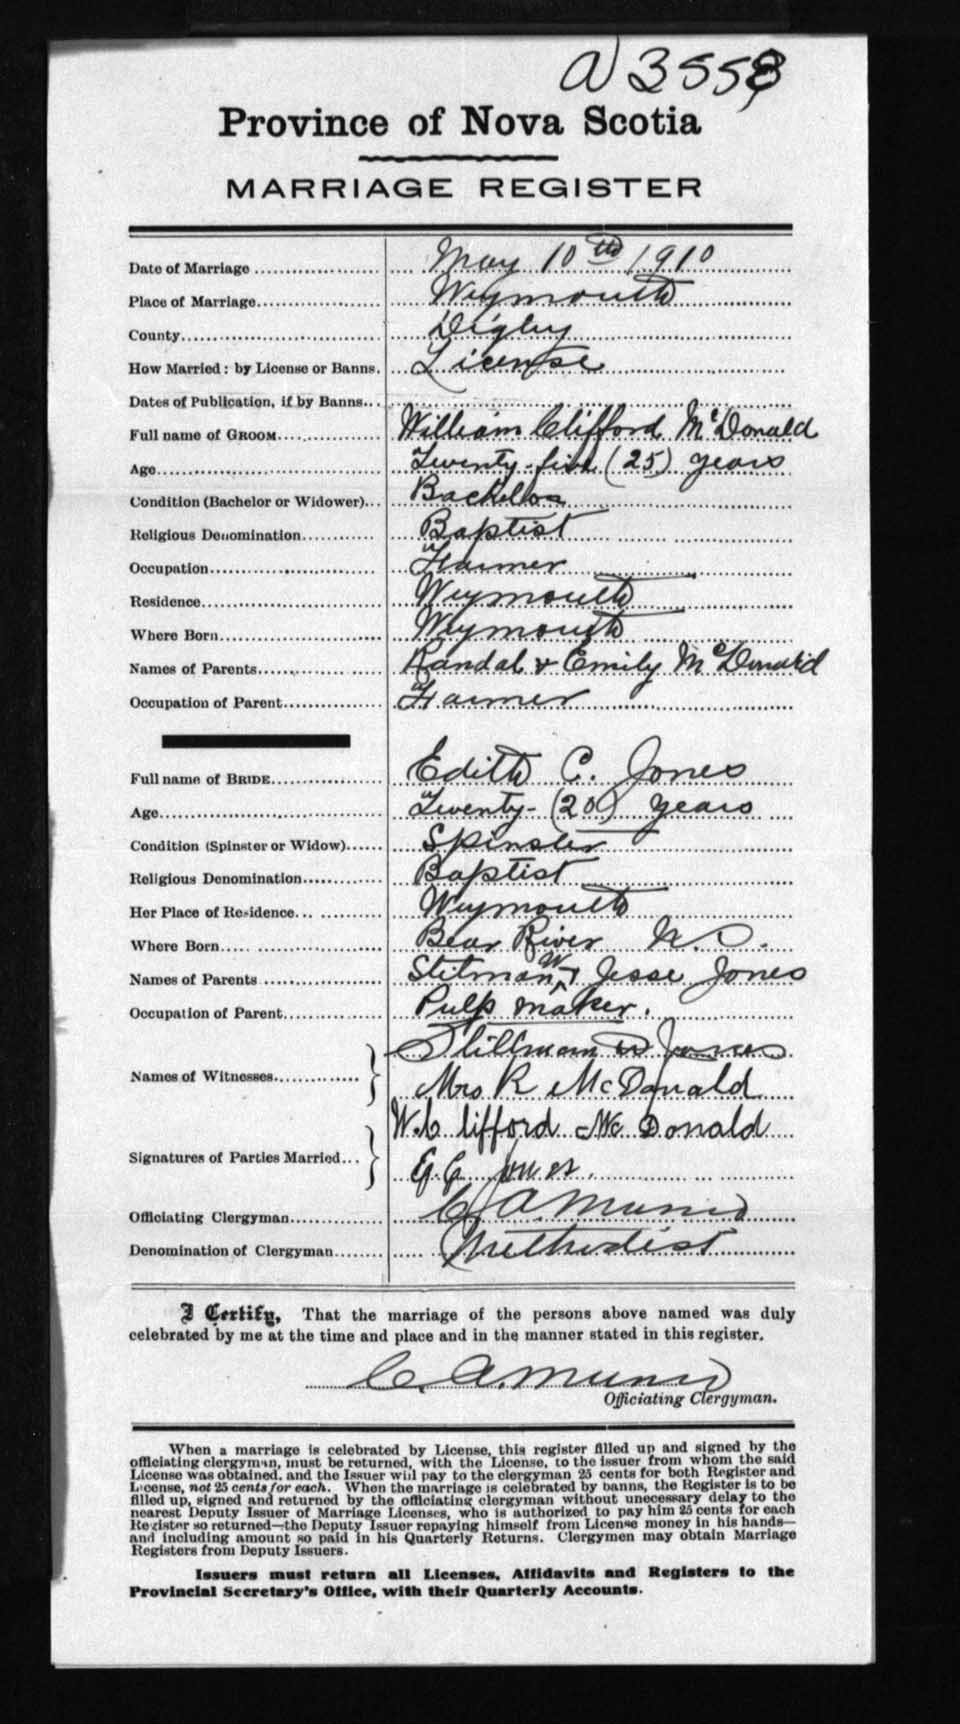 A 3558
Province of Nova Scotia
MARRIAGE REGISTER
Date of Marriage ..... May 10th 1910
Place of Marriage..... Weymouth
County..... Digby
How Married: by License or Banns. License
Dates of Publication, if by Banns...
Full name of GROOM..... William Clifford McDonald
Age..... Twenty-five (25) years
Condition (Bachelor or Widower)... Bachelor
Religious Denomination..... Baptist
Occupation..... Farmer
Residence..... Weymouth
Where Born..... Weymouth
Names of Parents..... Randal & Emily McDonald
Occupation of Parent..... Farmer
Full name of BRIDE..... Edith C. Jones
Age..... Twenty- (20) years
Condition (Spinster or Widow)...... Spinster
Religious Denomination..... Baptist
Her Place of Residence... Weymouth
Where Born..... Bear River N.S.
Names of Parents..... Stilman W & Jesse Jones
Occupation of Parent..... Pulp maker.
Stillman W Jones
Names of Witnesses..... Mrs R McDonald
W. Clifford McDonald
Signatures of Parties Married... E C Jones.
Officiating Clergyman..... C. A. Munro
Denomination of Clergyman........ Methodist
I Certify, That the marriage of the persons above named was duly
celebrated by me at the time and place and in the manner stated in this register.
C. A. Munro
Officiating Clergyman.
When a marriage is celebrated by License, this register filled up and signed by the
officiating clergyman, must be returned, with the License, to the issuer from whom the said
License was obtained, and the Issuer will pay to the clergyman 25 cents for both Register and
License, not 25 cents for each. When the marriage is celebrated by banns, the Register is to be
filled up, signed and returned by the officiating clergyman without unecessary delay to the
nearest Deputy Issuer of Marriage Licenses, who is authorized to pay him 25 cents for each
Register so returned—the Deputy Issuer repaying himself from License money in his hands—
and including amount so paid in his Quarterly Returns. Clergymen may obtain Marriage
Registers from Deputy Issuers.
Issuers must return all Licenses, Affidavits and Registers to the
Provincial Secretary's Office, with their Quarterly Accounts.